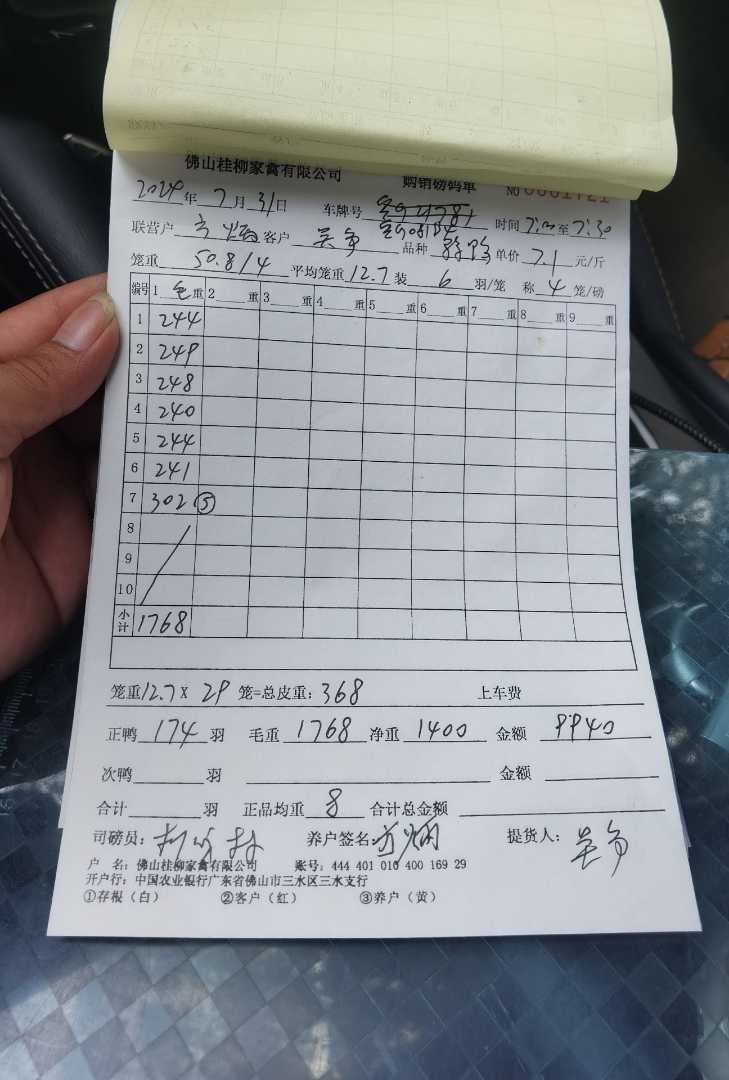 佛山桂柳家禽有限公司 购销磅码单 NO 0001721
2024年7月31日 车牌号 时间 7:00至7:30
联营户 客户 吴争 品种 单价 7.1 元/斤
笼重 50.8/4 平均笼重 12.7 装 6 羽/笼 称 4 笼/磅
编号 1 毛重 2 重 3 重 4 重 5 重 6 重 7 重 8 重 9 重
1 244
2 249
3 248
4 240
5 244
6 241
7 302 ⑤
8
9
10
小计 1768
笼重12.7 X 29 笼=总皮重:368 上车费
正鸭 174 羽 毛重 1768 净重 1400 金额 9940
次鸭 羽 金额
合计 羽 正品均重 8 合计总金额
司磅员: 养户签名: 提货人: 吴争
户 名:佛山桂柳家禽有限公司 账号:444 401 010 400 169 29
开户行:中国农业银行广东省佛山市三水区三水支行
①存根(白) ②客户(红) ③养户(黄)